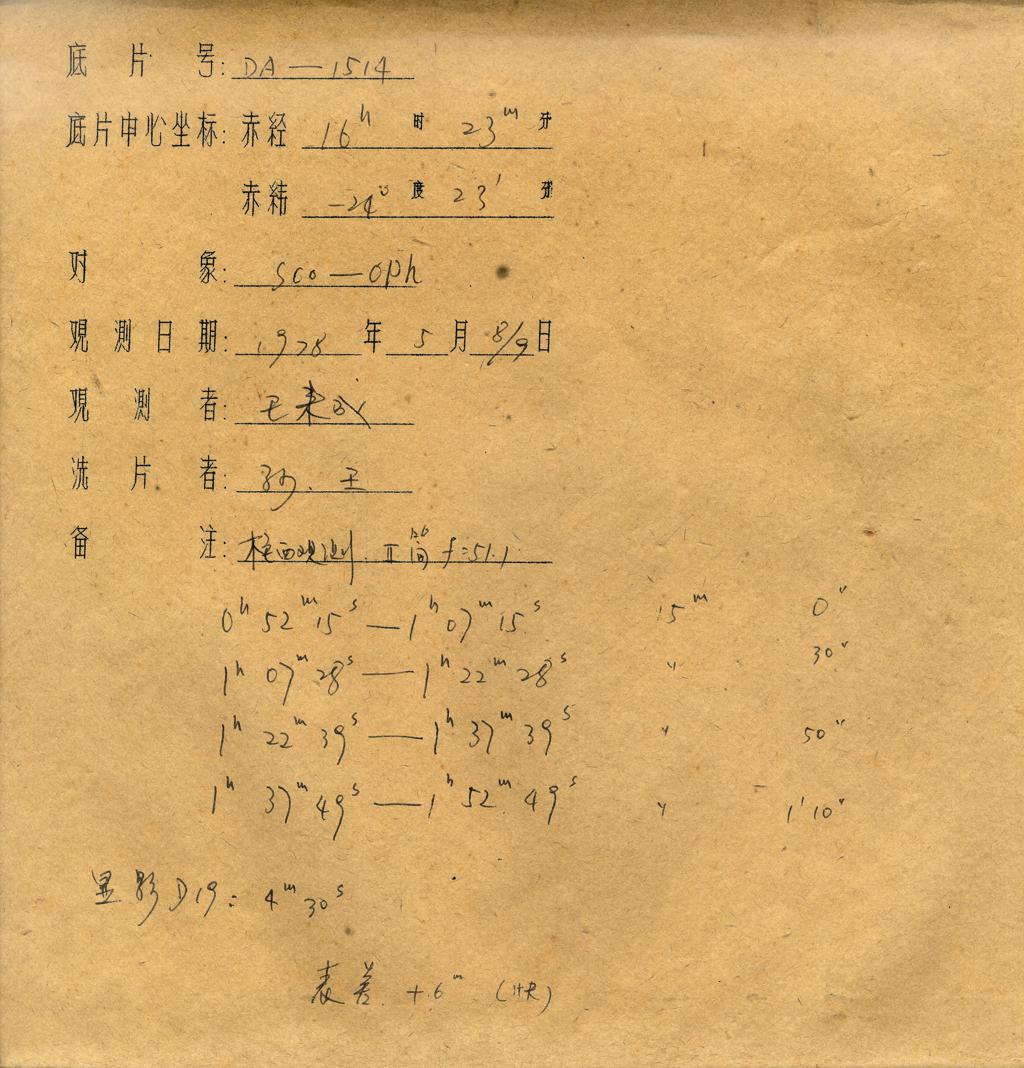 底片号: DA—1514
底片中心坐标: 赤经 16ʰ 时 23ᵐ 分
赤纬 -24° 度 23′ 分
对象: Sco—Oph
观测日期: 1978 年 5 月 8/9 日
观测者: 王来成
洗片者: 孙、王
备注: 西观测. II筒 f=51.1
0ʰ 52ᵐ 15ˢ — 1ʰ 07ᵐ 15ˢ 15ᵐ 0″
1ʰ 07ᵐ 28ˢ — 1ʰ 22ᵐ 28ˢ 〃 30″
1ʰ 22ᵐ 39ˢ — 1ʰ 37ᵐ 39ˢ 〃 50″
1ʰ 37ᵐ 49ˢ — 1ʰ 52ᵐ 49ˢ 〃 1′10″
显影D19: 4ᵐ 30ˢ
表差 +.6ᵐ (快)